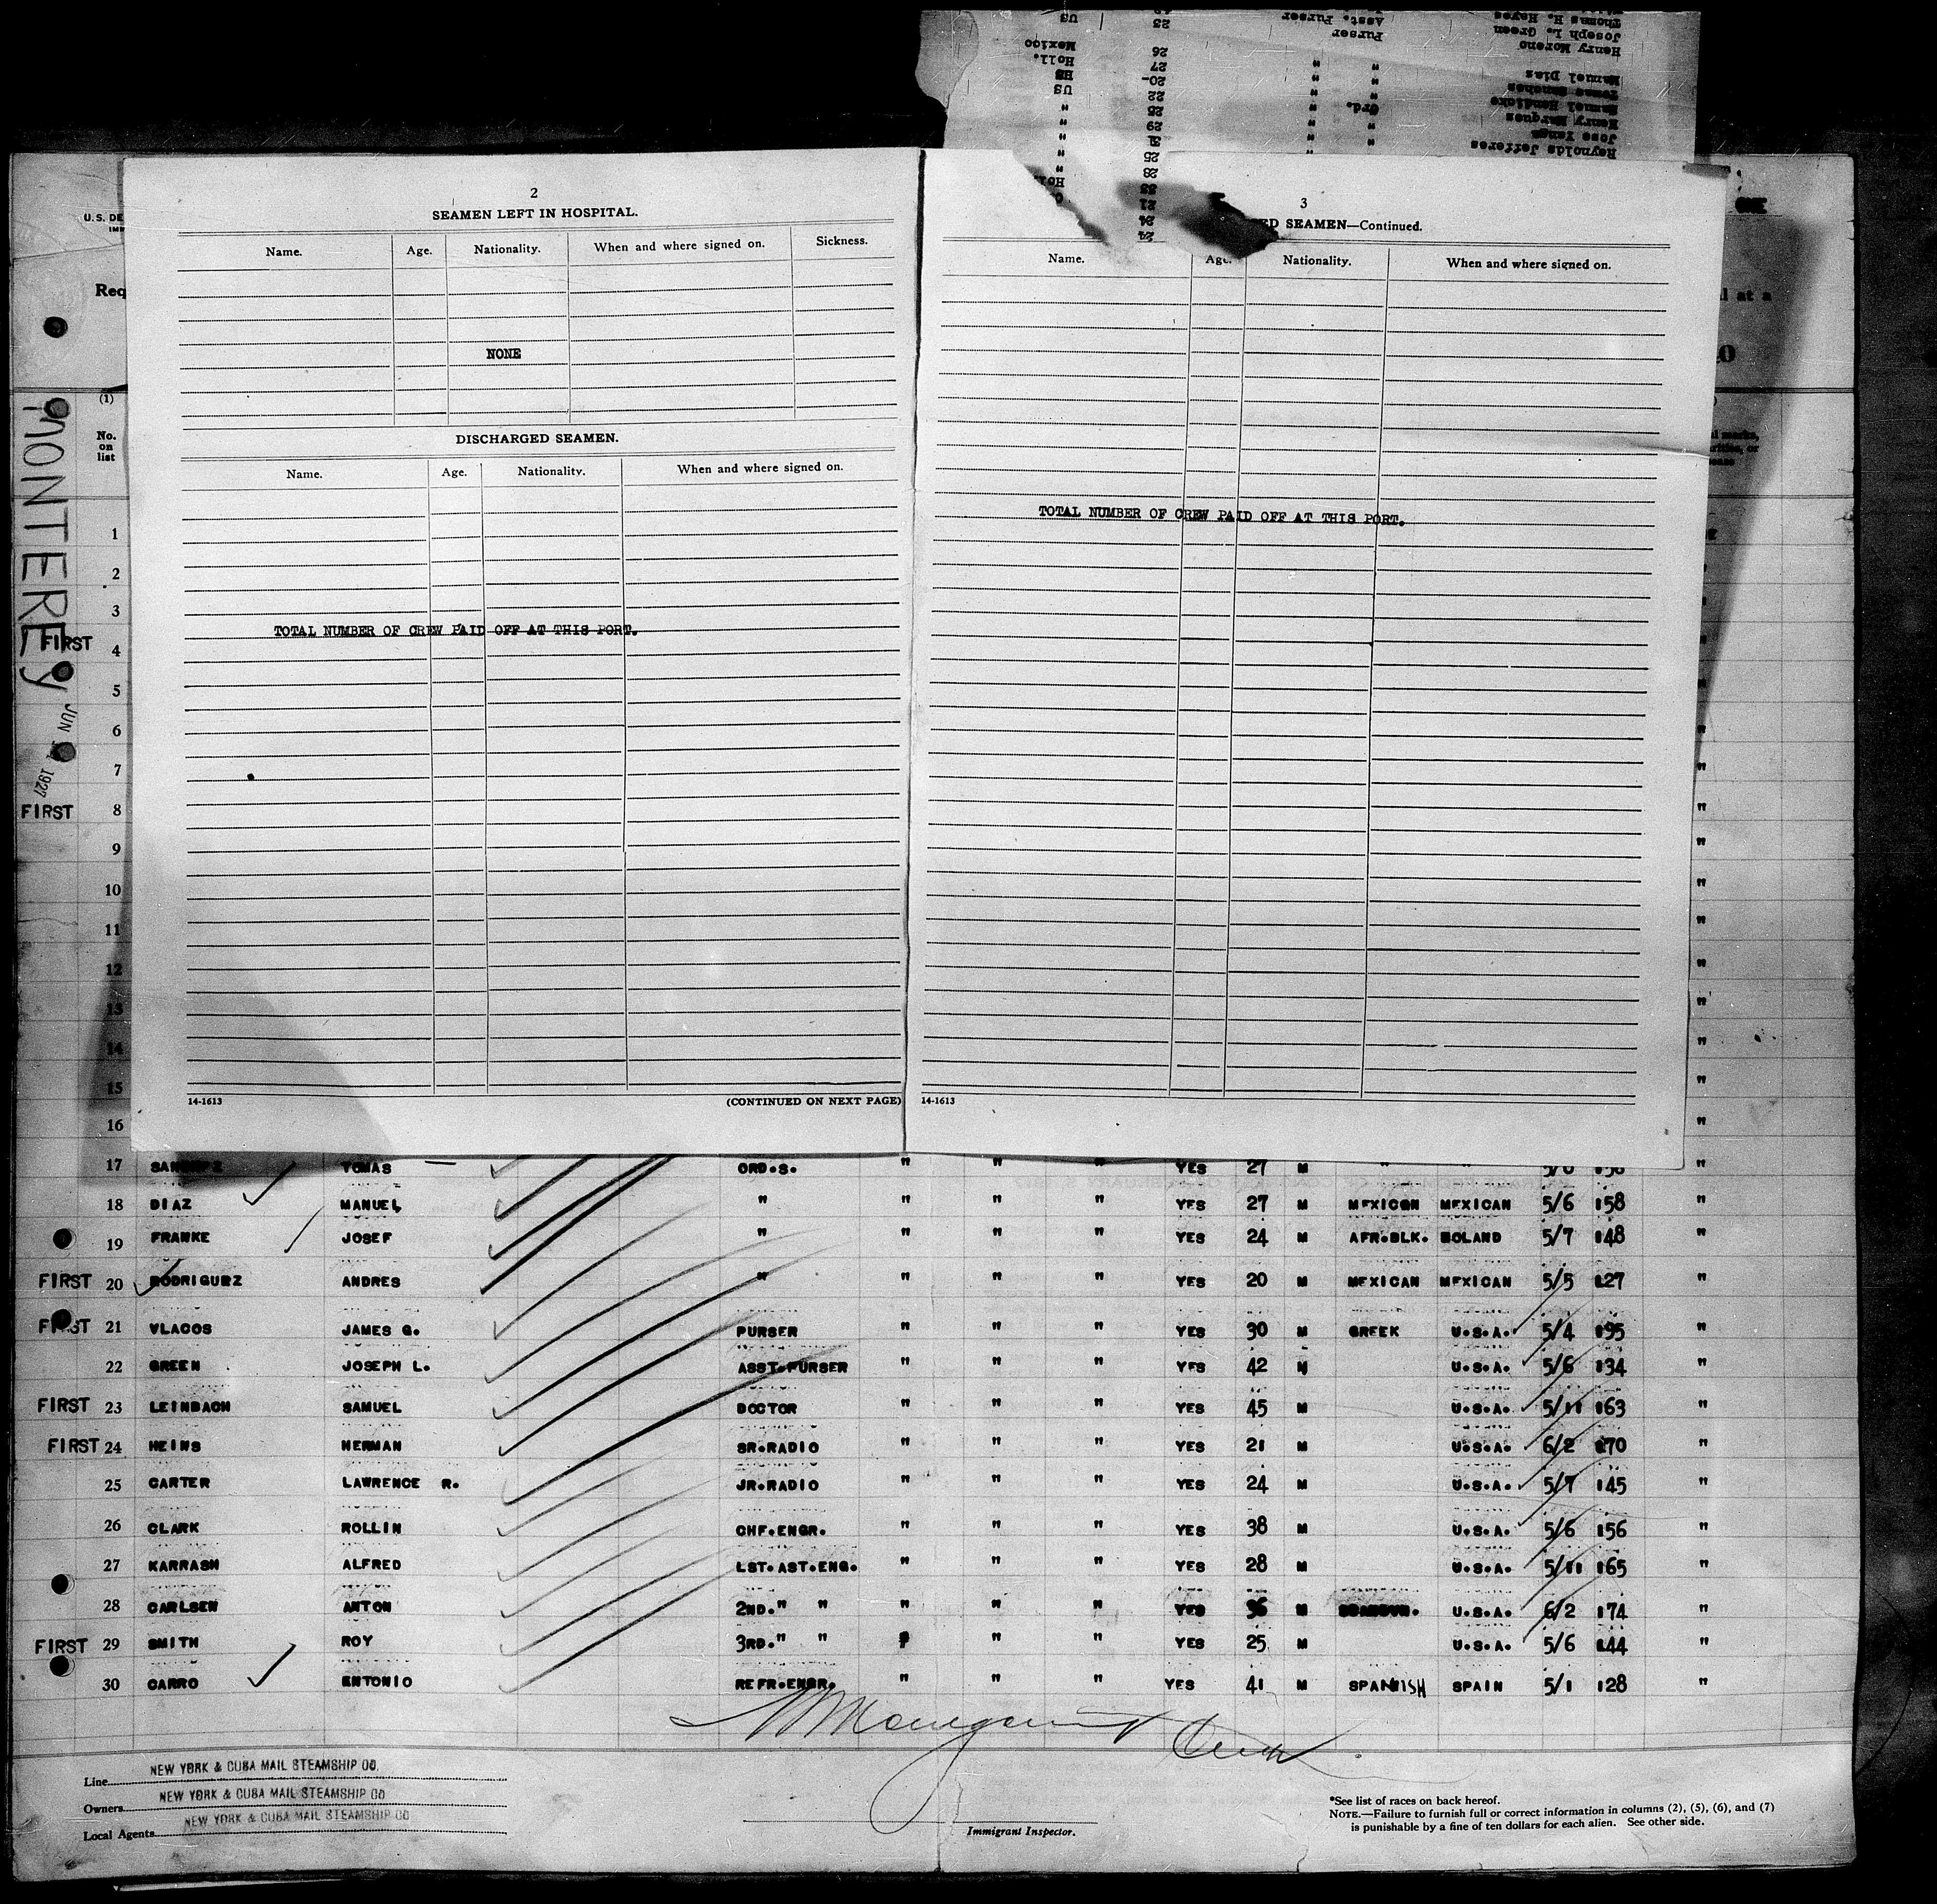 US 23 Asst. Purser Thomas H. Hayes
Purser Joseph L. Green
Mexico 26 Henry Moreno
Holl. 27 " "
HB 20- " " Manuel Dias
US 22 " "
" 25 " Ord. Samuel Hendicks
" 29 " " Henry Marques
" " " Jose Yanga
" 25 " " Reynolds Jefferes
28
Hol. 33
21
24
24
U.S. DE
Req
(1)
No.
on
list
MONTEREY
JUN 1927
2
SEAMEN LEFT IN HOSPITAL.
Name. Age. Nationality. When and where signed on. Sickness.
NONE
DISCHARGED SEAMEN.
Name. Age. Nationality. When and where signed on.
TOTAL NUMBER OF CREW PAID OFF AT THIS PORT.
14-1613 (CONTINUED ON NEXT PAGE)
3
ED SEAMEN—Continued.
Name. Age. Nationality. When and where signed on.
TOTAL NUMBER OF CREW PAID OFF AT THIS PORT.
14-1613
l at a
1
2
3
FIRST 4
5
6
7 "
FIRST 8 "
9 "
10 "
11 "
12 "
13 "
14 "
15 "
16 "
17 TOMAS ORD.S. " " " YES 27 M " " "
18 DIAZ MANUEL " " " " YES 27 M MEXICAN MEXICAN 5/6 158 "
19 FRANKE JOSEF " " " " YES 24 M AFR.BLK. HOLAND 5/7 148 "
FIRST 20 RODRIGUEZ ANDRES " " " " YES 20 M MEXICAN MEXICAN 5/5 127 "
FIRST 21 VLACOS JAMES G. PURSER " " " YES 30 M GREEK U.S.A. 5/4 195 "
22 GREEN JOSEPH L. ASST.PURSER " " " YES 42 M U.S.A. 5/6 134 "
FIRST 23 LEINBACH SAMUEL DOCTOR " " " YES 45 M U.S.A. 5/11 163 "
FIRST 24 HEINS HERMAN SR.RADIO " " " YES 21 M U.S.A. 6/2 170 "
25 CARTER LAWRENCE R. JR.RADIO " " " YES 24 M U.S.A. 5/7 145 "
26 CLARK ROLLIN CHF.ENGR. " " " YES 38 M U.S.A. 5/6 156 "
27 KARRASH ALFRED LST.AST.ENG. " " " YES 28 M U.S.A. 5/11 165 "
28 CARLSEN ANTON 2ND." " " " " YES 36 M U.S.A. 6/2 174 "
FIRST 29 SMITH ROY 3RD." " " " YES 25 M U.S.A. 5/6 144 "
30 CARRO ENTONIO REFR.ENGR. " " " YES 41 M SPANISH SPAIN 5/1 128 "
Line NEW YORK & CUBA MAIL STEAMSHIP CO.
Owners NEW YORK & CUBA MAIL STEAMSHIP CO
Local Agents NEW YORK & CUBA MAIL STEAMSHIP CO
Immigrant Inspector.
*See list of races on back hereof.
NOTE.—Failure to furnish full or correct information in columns (2), (5), (6), and (7)
is punishable by a fine of ten dollars for each alien. See other side.